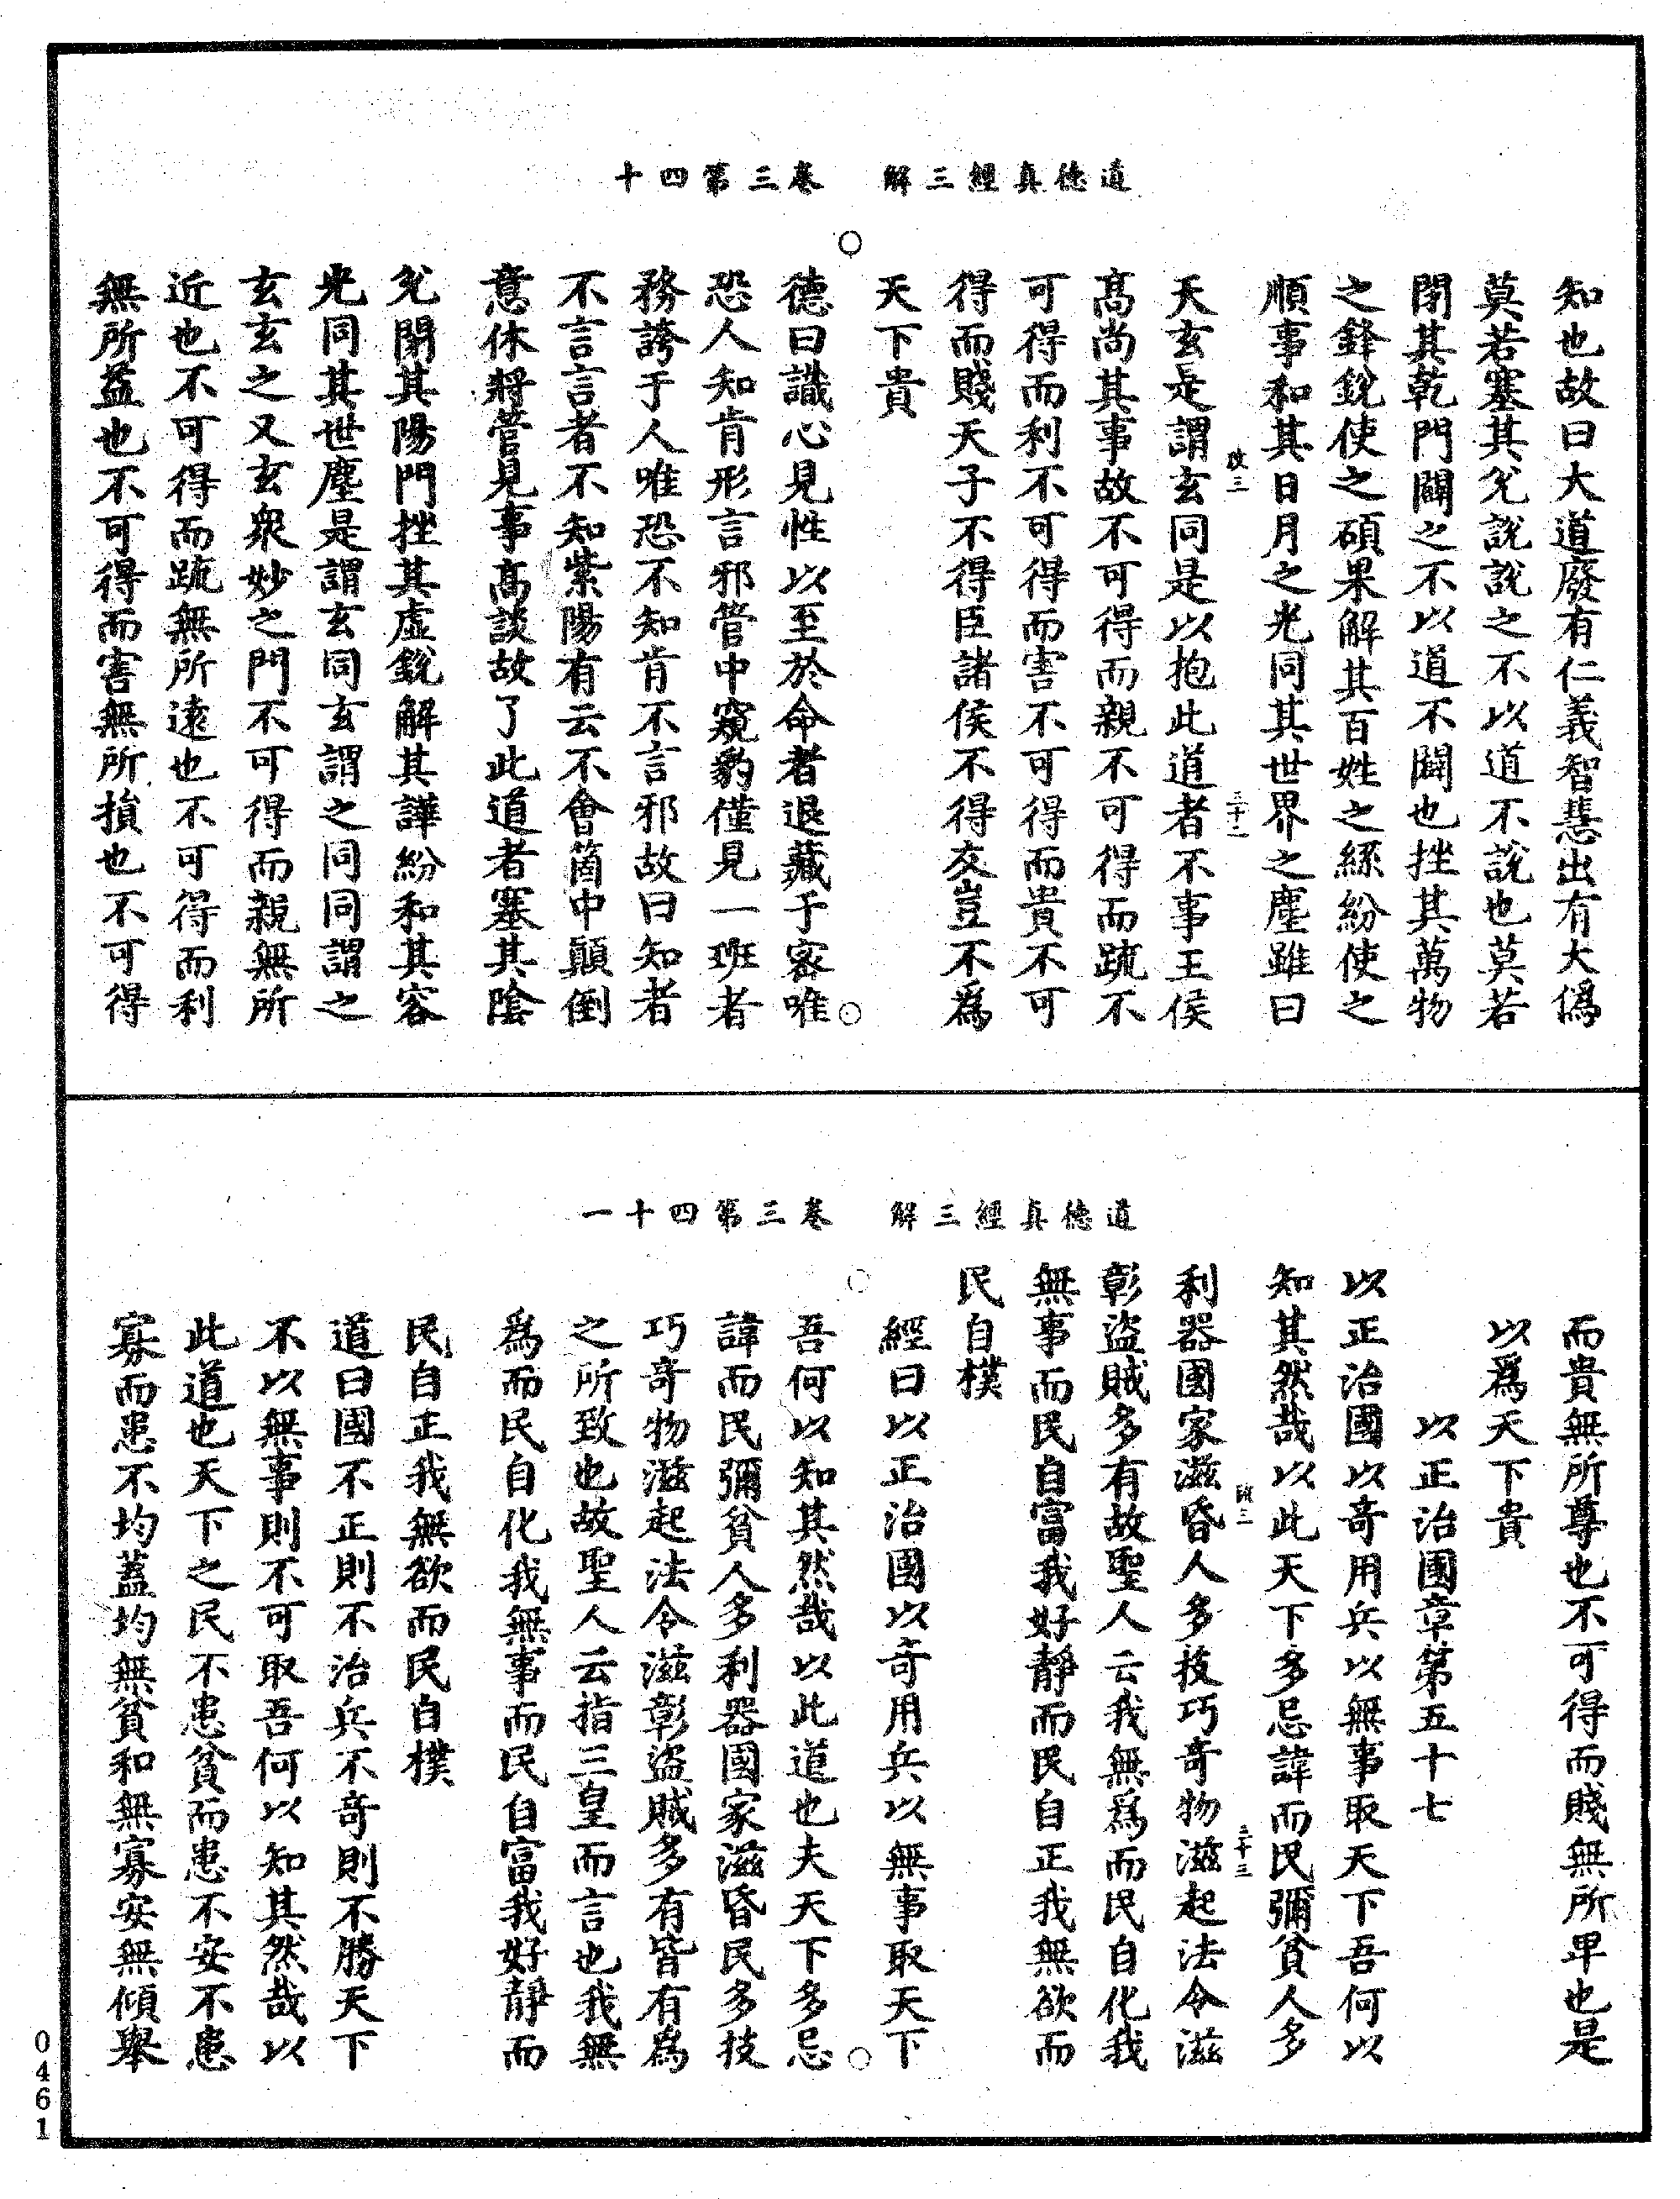 道德真經三解　卷三第四十
知也故曰大道廢有仁義智慧出有大僞
莫若塞其兊說說之不以道不說也莫若
閉其乾門闢之不以道不闢也挫其萬物
之鋒銳使之碩果解其百姓之綵紛使之
順事和其日月之光同其世界之塵雖曰
三十二
天玄是謂玄同是以抱此道者不事王侯
高尚其事故不可得而親不可得而䟽不
可得而利不可得而害不可得而貴不可
得而賤天子不得臣諸侯不得友豈不爲
天下貴
德曰識心見性以至於命者退藏于密唯
恐人知肯形言邪管中窺豹僅見一班者
務誇于人唯恐不知肯不言邪故曰知者
不言言者不知紫陽有云不會箇中顛倒
意休將管見事高談故了此道者塞其陰
兊閉其陽門挫其虛銳解其譁紛和其容
光同其世塵是謂玄同玄謂之同同謂之
玄玄之又玄衆妙之門不可得而親無所
近也不可得而䟽無所遠也不可得而利
無所益也不可得而害無所損也不可得
道德真經三解　卷三第四十一
而貴無所尊也不可得而賤無所卑也是
以爲天下貴
以正治國章第五十七
以正治國以奇用兵以無事取天下吾何以
知其然哉以此天下多忌諱而民彌貧人多
三十三
利器國家滋昏人多技巧奇物滋起法令滋
彰盜賊多有故聖人云我無爲而民自化我
無事而民自富我好靜而民自正我無欲而
民自樸
經曰以正治國以奇用兵以無事取天下
吾何以知其然哉以此道也夫天下多忌
諱而民彌貧人多利器國家滋昏民多技
巧奇物滋起法令滋彰盜賊多有皆有爲
之所致也故聖人云指三皇而言也我無
爲而民自化我無事而民自富我好靜而
民自正我無欲而民自樸
道曰國不正則不治兵不奇則不勝天下
不以無事則不可取吾何以知其然哉以
此道也天下之民不患貧而患不安不患
寡而患不均蓋均無貧和無寡安無傾舉
0461